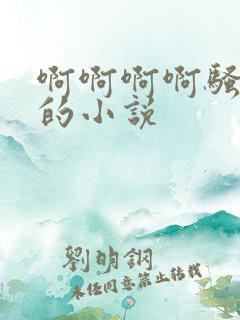 啊啊啊啊骚
的小说
劉明鋼
未经同意禁止转载